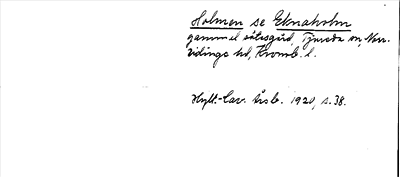 Holmen se Eknaholm
gammal sätesgård, Tjureda sn, Norr-
vidinge hd, Kronob. l.
Hylt.-Cav. årsb. 1920, s. 38.